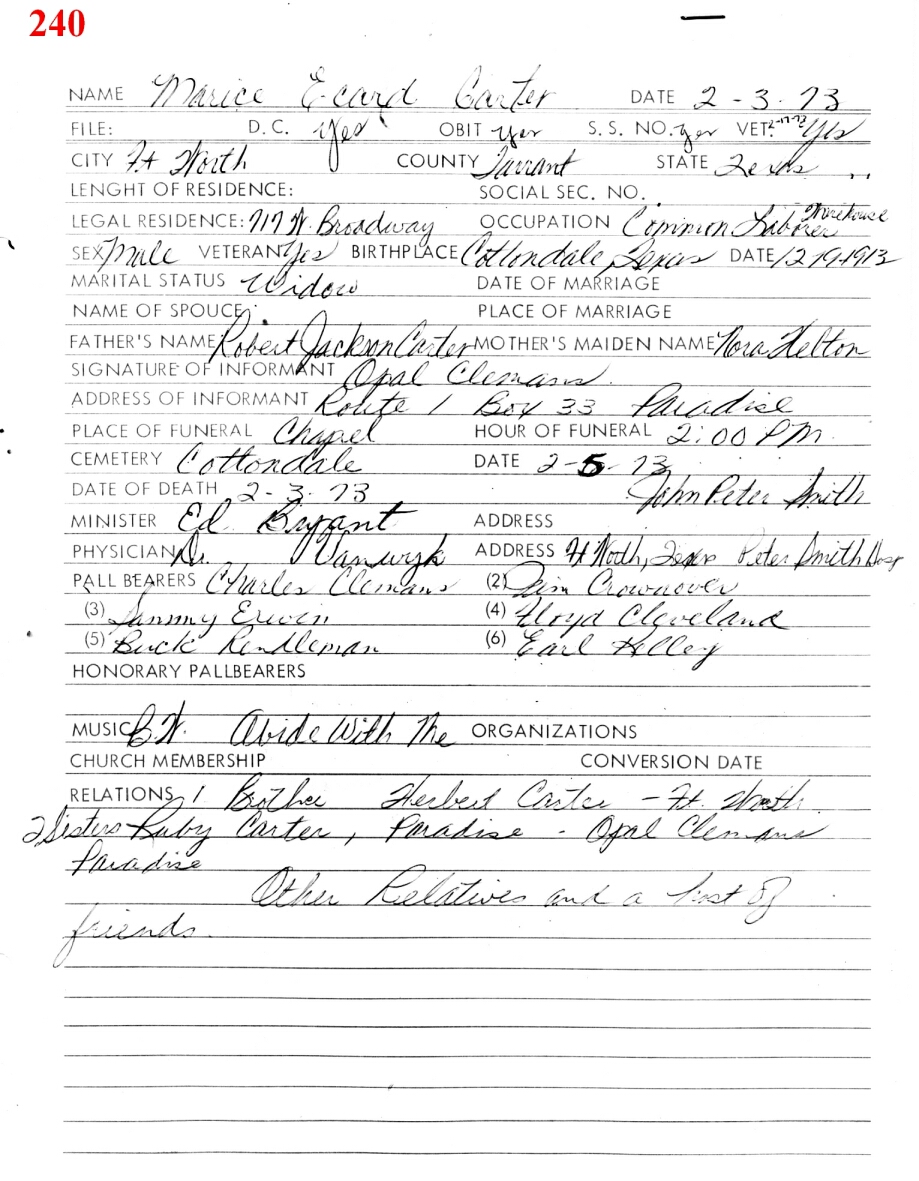 240
NAME Marice Ecard Carter DATE 2-3-73
FILE: D.C. yes OBIT yes S. S. NO. yes VET. 2-17-73 yes
CITY Ft Worth COUNTY Tarrant STATE Texas
LENGHT OF RESIDENCE: SOCIAL SEC. NO.
LEGAL RESIDENCE: 717 W. Broadway OCCUPATION Common Laborer Warehouse
SEX Male VETERAN Yes BIRTHPLACE Cottondale, Texas DATE 12-19-1913
MARITAL STATUS Widow DATE OF MARRIAGE
NAME OF SPOUCE: PLACE OF MARRIAGE
FATHER'S NAME Robert Jackson Carter MOTHER'S MAIDEN NAME Nora Helton
SIGNATURE OF INFORMANT Opal Clemans
ADDRESS OF INFORMANT Route 1 Box 33 Paradise
PLACE OF FUNERAL Chapel HOUR OF FUNERAL 2:00 PM
CEMETERY Cottondale DATE 2-5-73
DATE OF DEATH 2-3-73 John Peter Smith
MINISTER Ed Bryant ADDRESS
PHYSICIAN Dr. Vanwyk ADDRESS Ft Worth, Texas Peter Smith Hosp
PALL BEARERS Charles Clemans (2) Jim Crownover
(3) Sammy Erwin (4) Floyd Cleveland
(5) Buck Rendleman (6) Earl Kelley
HONORARY PALLBEARERS
MUSIC C.W. Abide With Me ORGANIZATIONS
CHURCH MEMBERSHIP CONVERSION DATE
RELATIONS 1 Brother Herbert Carter - Ft. Worth
2 Sisters Ruby Carter, Paradise - Opal Clemans
Paradise
Other Relatives and a host of
friends.